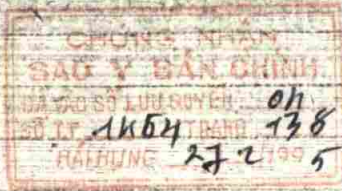 CHỨNG NHẬN
SAO Y BẢN CHÍNH
ĐÃ VÀO SỔ LƯU QUYỂN 01
SỐ T.T. 1454 TRANG 138
HẢI HƯNG 27 2 1995